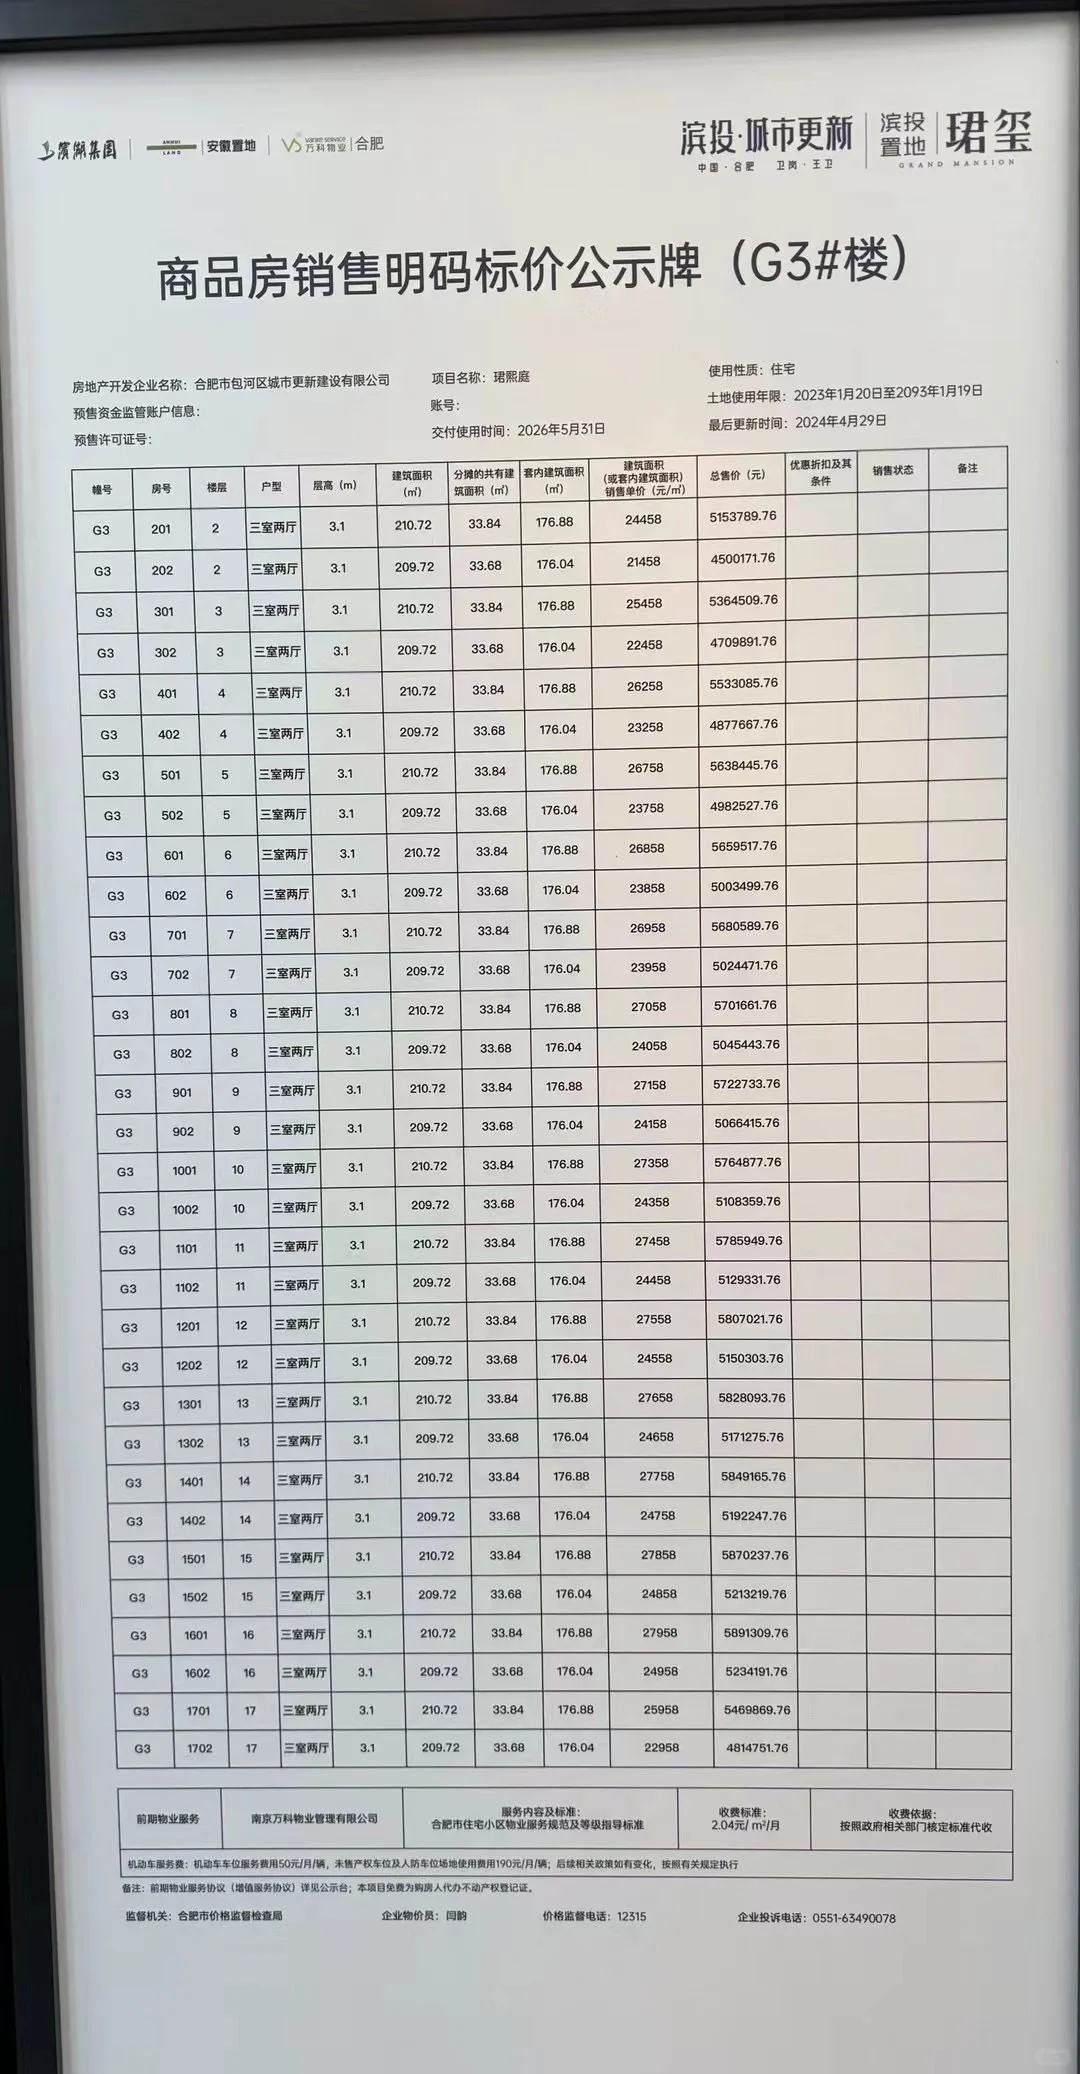 滨湖集团 ANHUI LAND 安徽置地 Vanke service 万科物业 合肥
滨投·城市更新 滨投置地 珺玺
中国·合肥 卫岗·王卫 GRAND MANSION
商品房销售明码标价公示牌（G3#楼）
房地产开发企业名称：合肥市包河区城市更新建设有限公司 项目名称：珺熙庭 使用性质：住宅
预售资金监管账户信息： 账号： 土地使用年限：2023年1月20日至2093年1月19日
预售许可证号： 交付使用时间：2026年5月31日 最后更新时间：2024年4月29日
幢号 房号 楼层 户型 层高（m） 建筑面积（㎡） 分摊的共有建筑面积（㎡） 套内建筑面积（㎡） 建筑面积（或套内建筑面积）销售单价（元/㎡） 总售价（元） 优惠折扣及其条件 销售状态 备注
G3 201 2 三室两厅 3.1 210.72 33.84 176.88 24458 5153789.76
G3 202 2 三室两厅 3.1 209.72 33.68 176.04 21458 4500171.76
G3 301 3 三室两厅 3.1 210.72 33.84 176.88 25458 5364509.76
G3 302 3 三室两厅 3.1 209.72 33.68 176.04 22458 4709891.76
G3 401 4 三室两厅 3.1 210.72 33.84 176.88 26258 5533085.76
G3 402 4 三室两厅 3.1 209.72 33.68 176.04 23258 4877667.76
G3 501 5 三室两厅 3.1 210.72 33.84 176.88 26758 5638445.76
G3 502 5 三室两厅 3.1 209.72 33.68 176.04 23758 4982527.76
G3 601 6 三室两厅 3.1 210.72 33.84 176.88 26858 5659517.76
G3 602 6 三室两厅 3.1 209.72 33.68 176.04 23858 5003499.76
G3 701 7 三室两厅 3.1 210.72 33.84 176.88 26958 5680589.76
G3 702 7 三室两厅 3.1 209.72 33.68 176.04 23958 5024471.76
G3 801 8 三室两厅 3.1 210.72 33.84 176.88 27058 5701661.76
G3 802 8 三室两厅 3.1 209.72 33.68 176.04 24058 5045443.76
G3 901 9 三室两厅 3.1 210.72 33.84 176.88 27158 5722733.76
G3 902 9 三室两厅 3.1 209.72 33.68 176.04 24158 5066415.76
G3 1001 10 三室两厅 3.1 210.72 33.84 176.88 27358 5764877.76
G3 1002 10 三室两厅 3.1 209.72 33.68 176.04 24358 5108359.76
G3 1101 11 三室两厅 3.1 210.72 33.84 176.88 27458 5785949.76
G3 1102 11 三室两厅 3.1 209.72 33.68 176.04 24458 5129331.76
G3 1201 12 三室两厅 3.1 210.72 33.84 176.88 27558 5807021.76
G3 1202 12 三室两厅 3.1 209.72 33.68 176.04 24558 5150303.76
G3 1301 13 三室两厅 3.1 210.72 33.84 176.88 27658 5828093.76
G3 1302 13 三室两厅 3.1 209.72 33.68 176.04 24658 5171275.76
G3 1401 14 三室两厅 3.1 210.72 33.84 176.88 27758 5849165.76
G3 1402 14 三室两厅 3.1 209.72 33.68 176.04 24758 5192247.76
G3 1501 15 三室两厅 3.1 210.72 33.84 176.88 27858 5870237.76
G3 1502 15 三室两厅 3.1 209.72 33.68 176.04 24858 5213219.76
G3 1601 16 三室两厅 3.1 210.72 33.84 176.88 27958 5891309.76
G3 1602 16 三室两厅 3.1 209.72 33.68 176.04 24958 5234191.76
G3 1701 17 三室两厅 3.1 210.72 33.84 176.88 25958 5469869.76
G3 1702 17 三室两厅 3.1 209.72 33.68 176.04 22958 4814751.76
前期物业服务 南京万科物业管理有限公司 服务内容及标准：合肥市住宅小区物业服务规范及等级指导标准 收费标准：2.04元/㎡/月 收费依据：按照政府相关部门核定标准代收
机动车服务费：机动车车位服务费用50元/月/辆，未售产权车位及人防车位场地使用费用190元/月/辆；后续相关政策如有变化，按照有关规定执行
备注：前期物业服务协议（增值服务协议）详见公示台；本项目免费为购房人代办不动产权登记证。
监督机关：合肥市价格监督检查局 企业物价员：闫韵 价格监督电话：12315 企业投诉电话：0551-63490078